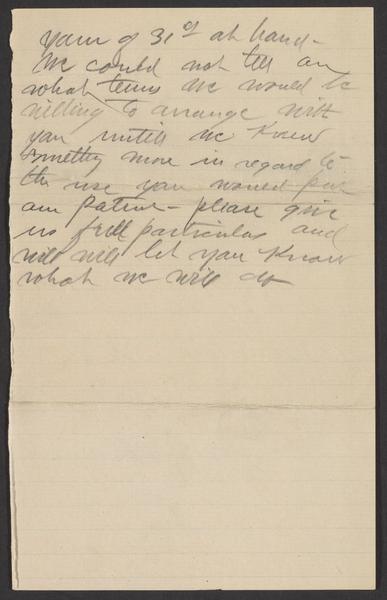 Yours of 31st at hand -
We could not tell on
what terms we would be
willing to arrange with
you untill we Knew
something more in regard to
the use you would put
our Patent - please give
us full particulars and
will will let you Know
what we will do